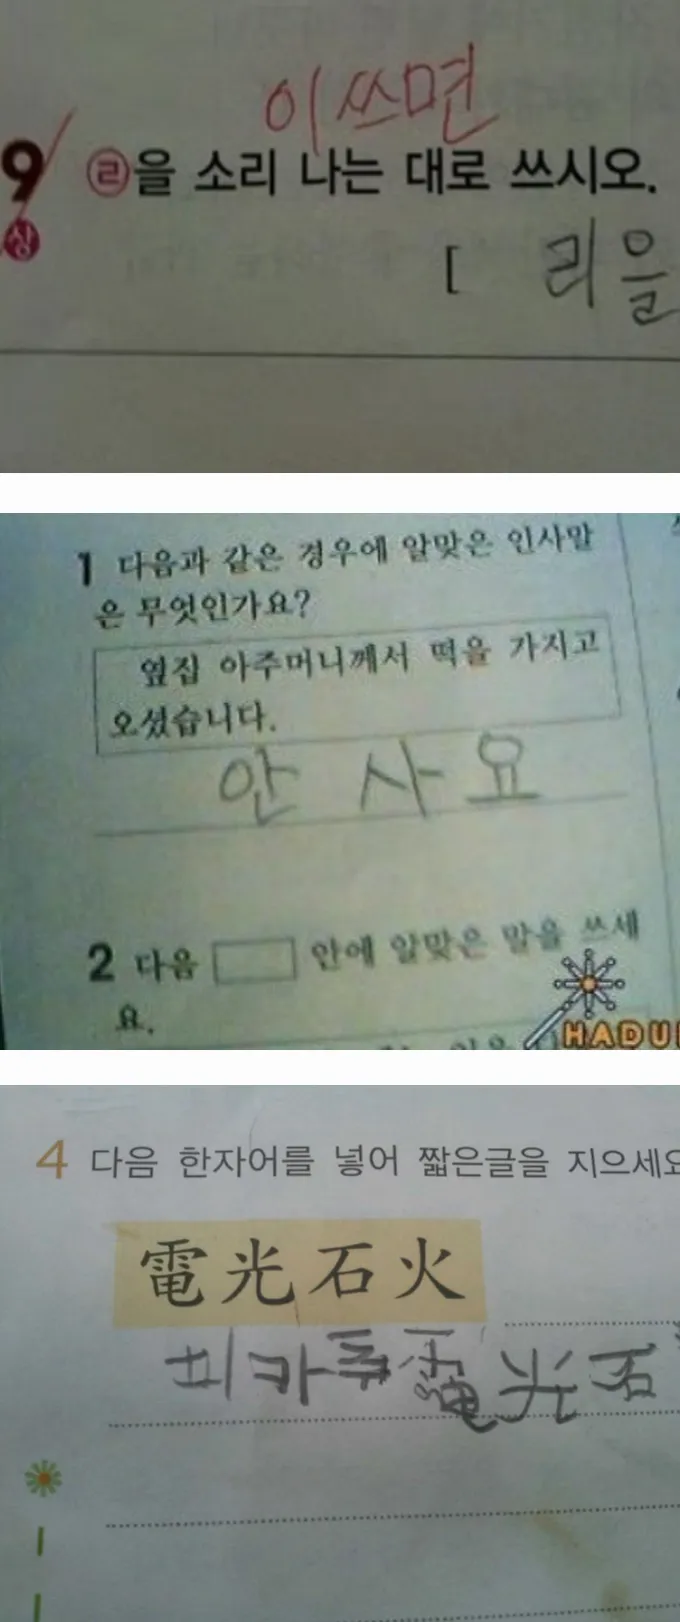 이쓰면
9 ㉣을 소리 나는 대로 쓰시오.
상
[ 리을
1 다음과 같은 경우에 알맞은 인사말
은 무엇인가요?
옆집 아주머니께서 떡을 가지고
오셨습니다.
안 사요
2 다음 안에 알맞은 말을 쓰세
요.
HADU
4 다음 한자어를 넣어 짧은글을 지으세요
電光石火
피카츄 電光石